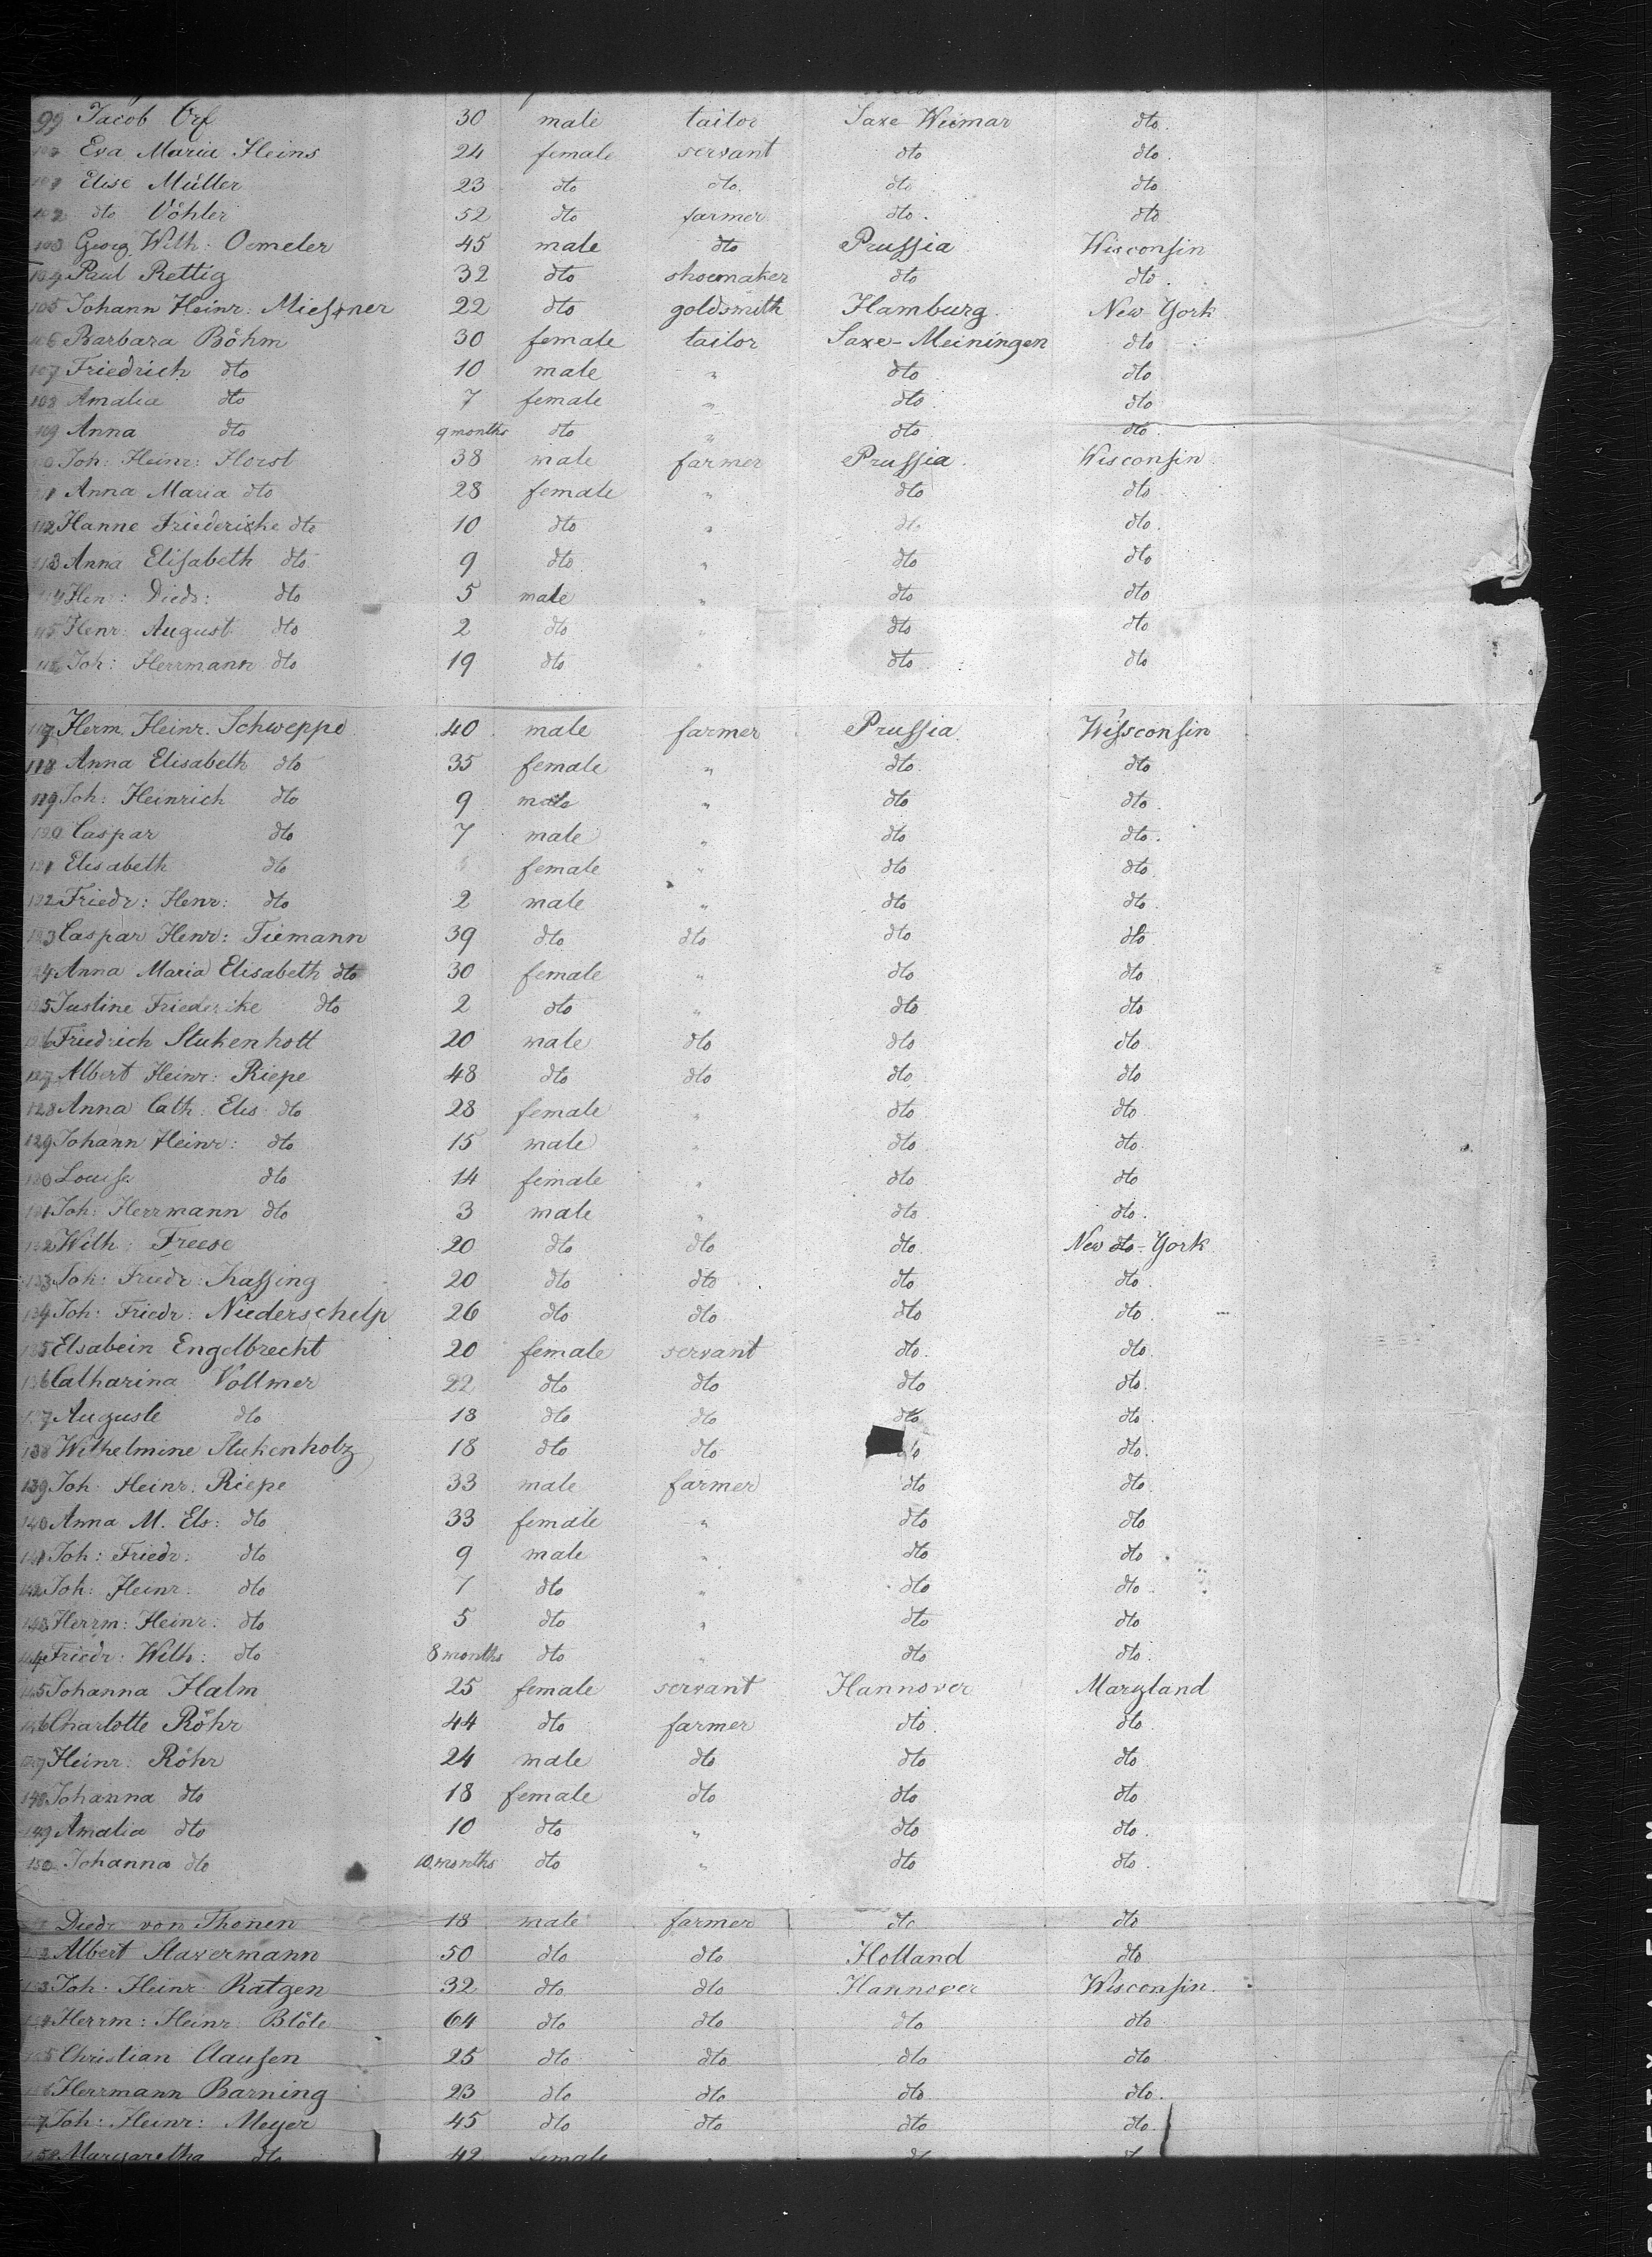 99 Jacob Orf 30 male tailor Saxe Weimar dto.
100 Eva Maria Heins 24 female servant dto dto.
101 Elise Müller 23 dto dto. dto dto
102 dto Vöhler 52 dto farmer dto. dto
103 Georg Wilh: Oemeler 45 male dto Prussia Wisconsin
104 Paul Rettig 32 dto shoemaker dto dto.
105 Johann Heinr: Miessner 22 dto goldsmith Hamburg. New-York
106 Barbara Böhm 30 female tailor Saxe-Meiningen dto
107 Friedrich dto 10 male " dto dto
108 Amalia dto 7 female " dto dto
109 Anna dto 9 months dto " dto dto.
110 Joh: Heinr: Horst 38 male farmer Prussia. Wisconsin
111 Anna Maria dto 28 female " dto dto
112 Hanne Friederike dto 10 dto " dto dto.
113 Anna Elisabeth dto. 9 dto. " dto dto
114 Hen: Diedr: dto 5 male " dto dto
115 Henr: August dto 2 dto " dto dto
116 Joh: Herrmann dto 19 dto " dto dto
117 Herm. Heinr. Schweppe 40 male farmer Prussia. Wissconsin
118 Anna Elisabeth dto 35 female " dto. dto
119 Joh: Heinrich dto 9 male " dto dto.
120 Caspar dto 7 male " dto dto.
121 Elisabeth dto female " dto dto.
122 Friedr: Henr: dto 2 male " dto dto.
123 Caspar Henr: Tiemann 39 dto dto dto dto
124 Anna Maria Elisabeth dto 30 female " dto dto
125 Justine Friederike dto 2 dto " dto dto
126 Friedrich Stukenholt 20 male dto dto dto
127 Albert Heinr: Riepe 48 dto dto dto dto
128 Anna Cath: Elis dto 28 female " dto. dto
129 Johann Heinr: dto 15 male " dto dto.
130 Louise dto 14 female " dto dto
131 Joh: Herrmann dto 3 male " dto dto.
132 Wilh: Freese 20 dto dto dto. New dto-York
133 Joh: Friedr: Kassing 20 dto dto dto dto.
134 Joh: Friedr: Niederschelp 26 dto dto dto dto.
135 Elsabein Engelbrecht 20 female servant dto. dto
136 Catharina Vollmer 22 dto dto dto dto.
137 Auguste dto 18 dto dto dto dto.
138 Wilhelmine Stukenholz 18 dto dto dto dto.
139 Joh: Heinr: Riepe 33 male farmer dto dto
140 Anna M. Els: dto 33 female " dto dto
141 Joh: Friedr: dto 9 male " dto dto.
142 Joh: Heinr: dto 7 dto " dto dto.
143 Herrm: Heinr: dto 5 dto " dto dto
144 Friedr: Wilh: dto 8 months dto " dto dto.
145 Johanna Halm 25 female servant Hannover Maryland
146 Charlotte Röhr 44 dto farmer dto. dto
147 Heinr: Röhr 24 male dto dto dto
148 Johanna dto 18 female dto dto dto
149 Amalia dto 10 dto " dto dto.
150 Johanna dto 10 months dto " dto dto.
Diedr von Thonen 18 male farmer dto dto
152 Albert Stavermann 50 dto dto Holland dto
153 Joh: Heinr: Ratgen 32 dto dto Hannover Wisconsin.
154 Herrm: Heinr: Blöte 64 dto dto dto dto
155 Christian Clausen 25 dto dto dto dto
156 Herrmann Barning 23 dto dto dto dto.
157 Joh: Heinr: Meyer 45 dto dto dto dto.
158 Margaretha dto 42 female